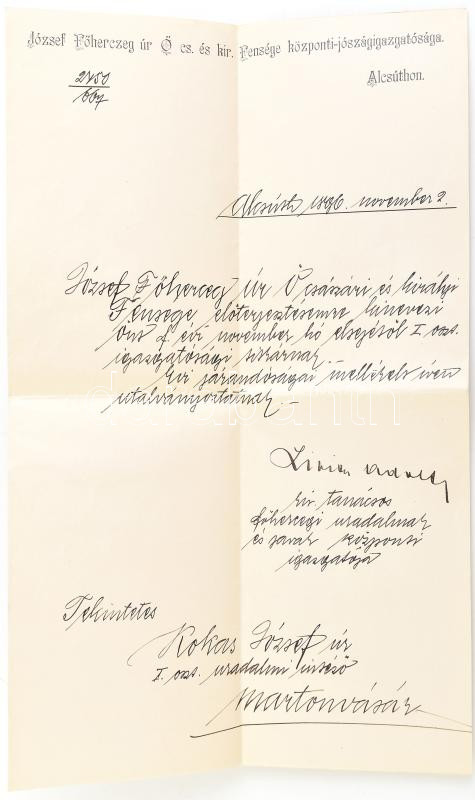 József Főherczeg úr Ő cs. és kir. Fensége központi-jószágigazgatósága.
Alcsúthon.
2450
667
Alcsúth 1896. november 2.
József Főherceg úr Ő császári és királyi
Fensége előterjesztésemre kinevezi
Önt f. évi november hó elsejétől I. oszt.
igazgatósági titkárnak.
járandóságai mellékelt íven
utalványoztatnak. –
kir. tanácsos
főhercegi uradalmak
és javak központi
igazgatója
Tekintetes
Kokas József úr
I. oszt. uradalmi intéző
Martonvásár